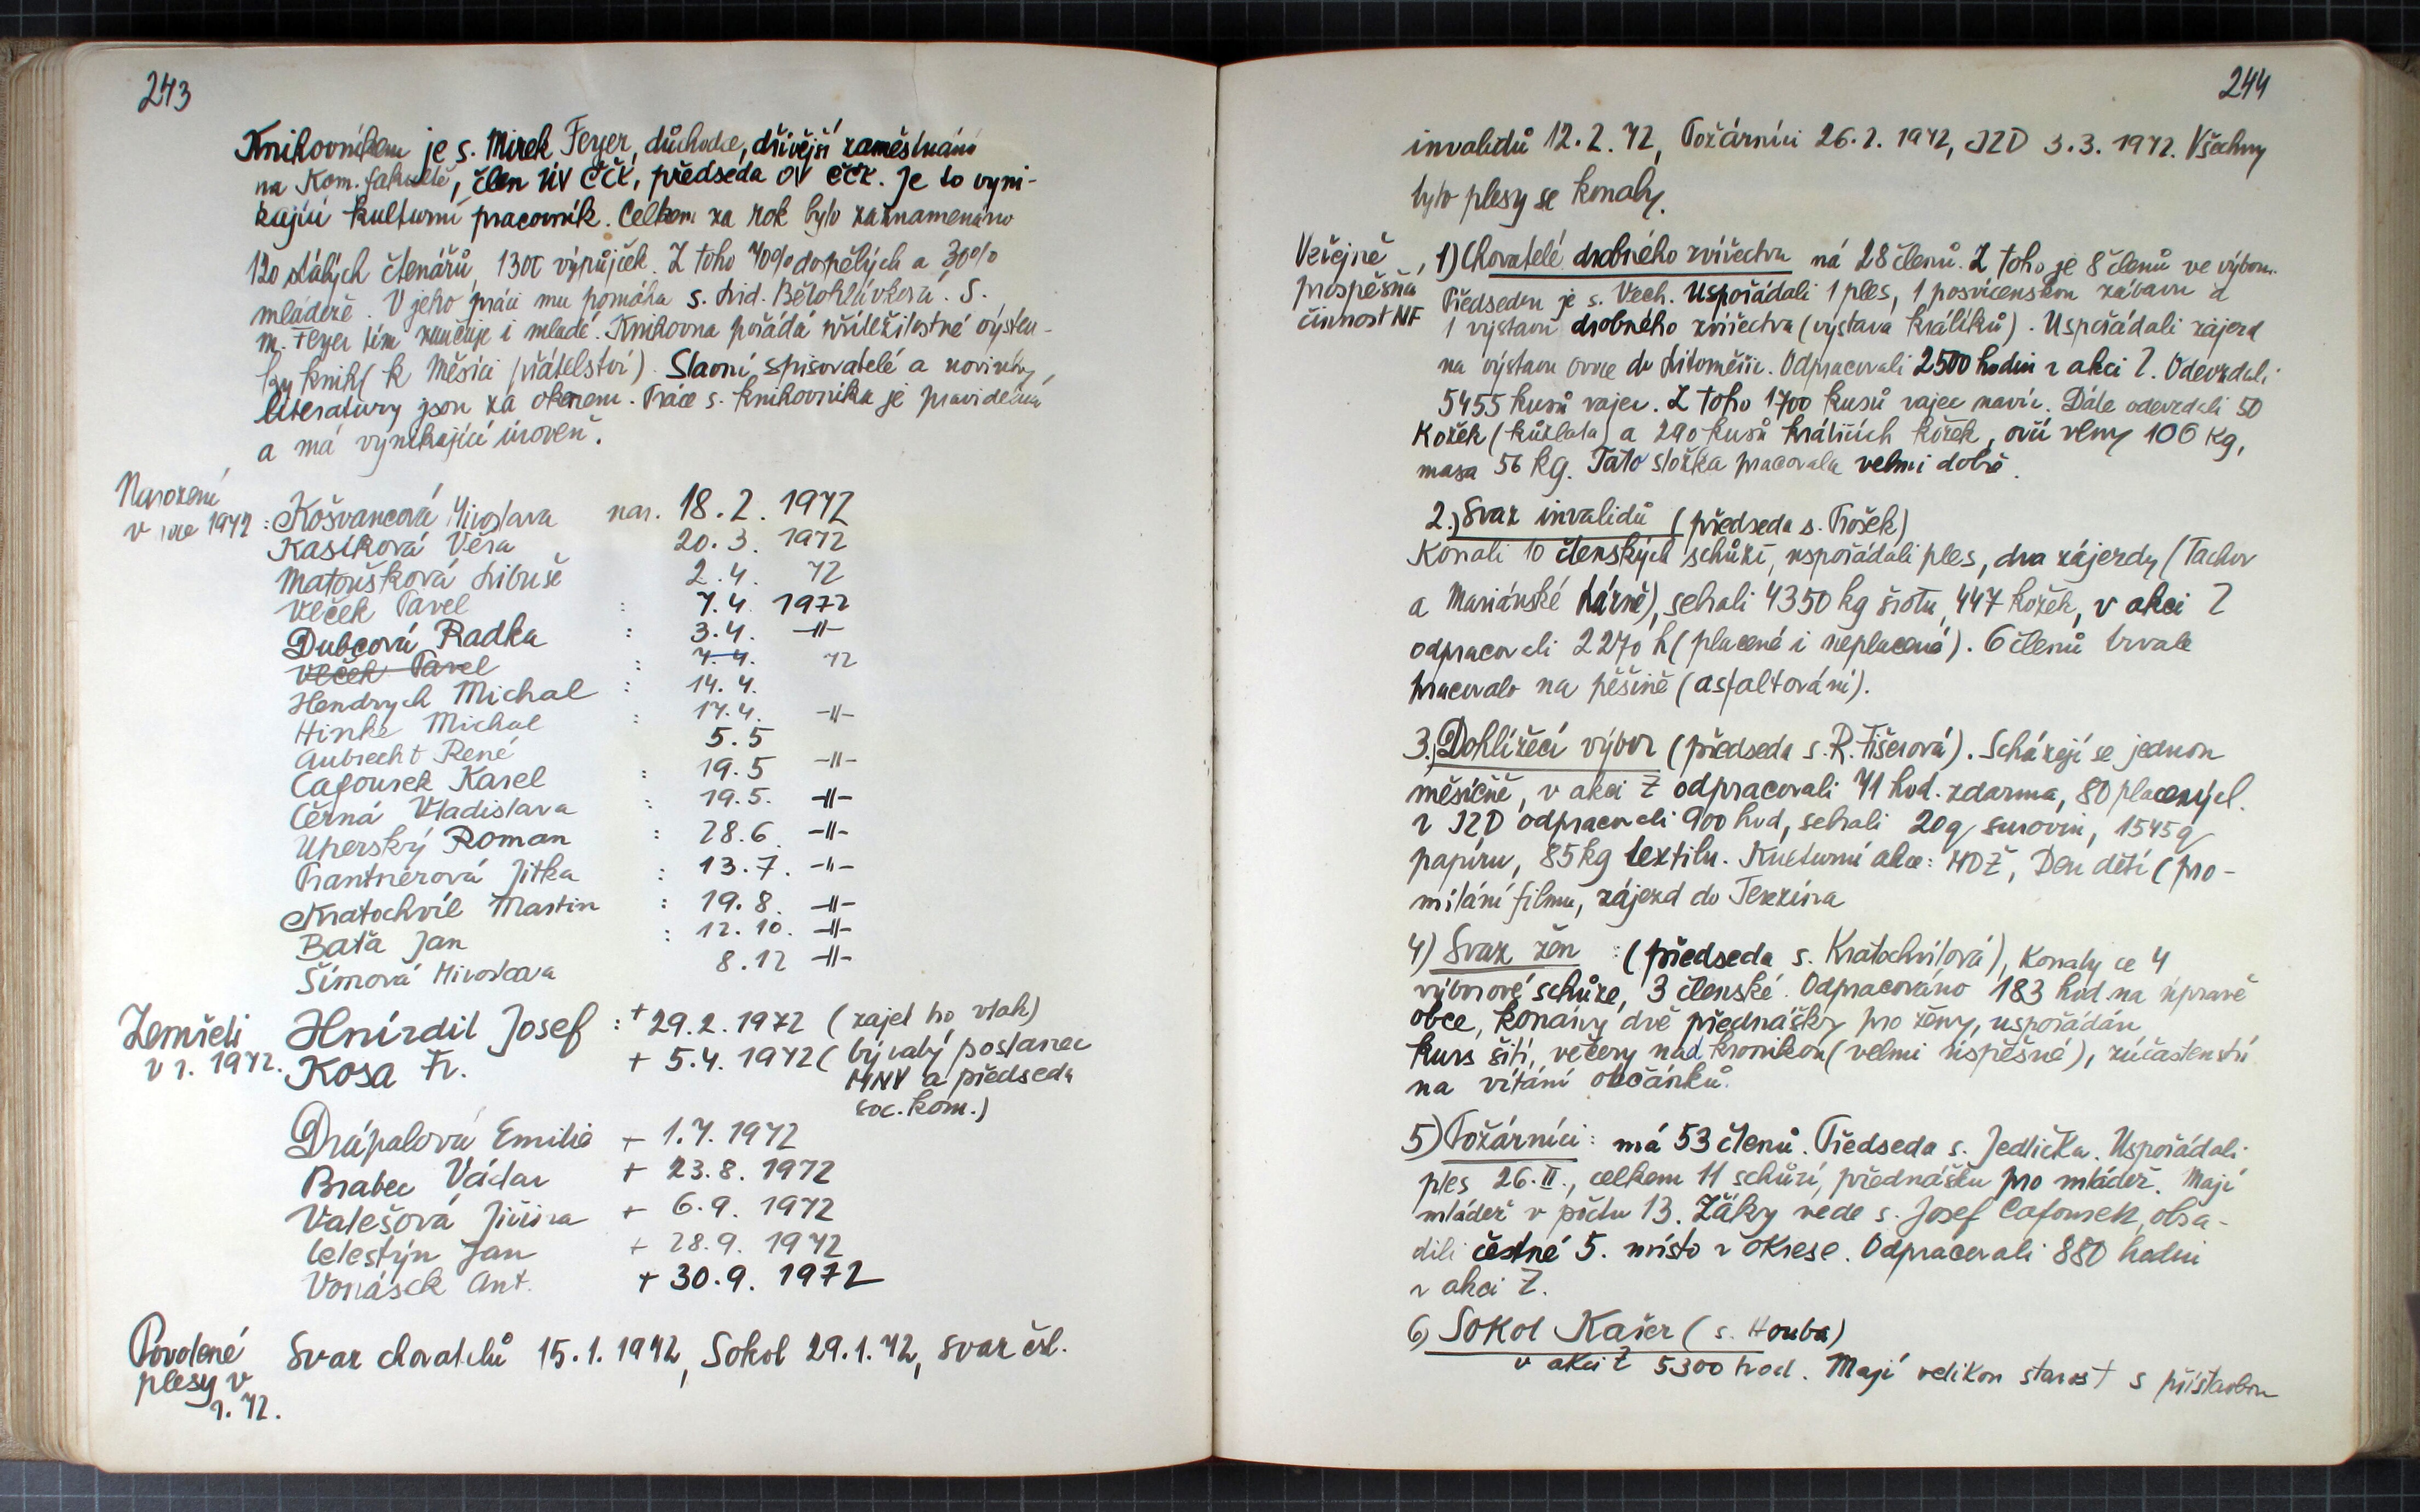 243
Knihovníkem je s. Mirek Feyer, důchodce, dřívější zaměstnání
na Kom. fakultě, člen ÚV ČČK, předseda OV ČČK. Je to vyni-
kající kulturní pracovník. Celkem za rok bylo zaznamenáno
120 stálých čtenářů, 1300 výpůjček. Z toho 70% dospělých a 30%
mládeže. V jeho práci mu pomáhá s. Lid. Bělohlávková. S.
M. Feyer tím zaučuje i mladé. Knihovna pořádá příležitostné výstav-
ky knih (k Měsíci přátelství). Slavní spisovatelé a novinky
literatury jsou za oknem. Práce s. knihovníka je pravidelná
a má vynikající úroveň.
Narození
v roce 1972 : Košvancová Miroslava nar. 18.2. 1972
Kasíková Věra 20.3. 1972
Matoušková Libuše 2.4. 72
Vlček Pavel : 7.4. 1972
Dubcová Radka : 3.4. -||-
Vlček Pavel : 7.4. 72
Hendrych Michal : 14.4.
Hinke Michal : 17.4. -||-
Aubrecht René 5.5
Cafourek Karel : 19.5 -||-
Černá Vladislava : 19.5. -||-
Uherský Roman : 28.6 -||-
Trantnerová Jitka : 13.7. -||-
Kratochvíl Martin : 19.8. -||-
Baťa Jan : 12.10. -||-
Šímová Miroslava 8.12 -||-
Zemřeli Hnírdil Josef : + 29.2.1972 (zajel ho vlak)
v r. 1972. Kosa Fr. + 5.4.1972 (bývalý poslanec
MNV a předseda
soc. kom.)
Drápalová Emilie + 1.7.1972
Brabec Václav + 23.8.1972
Valešová Jiřina + 6.9.1972
Celestýn Jan + 28.9.1972
Vonásek Ant. + 30.9.1972
Povolené Svaz chovatelů 15.1.1972, Sokol 29.1.72, svaz čsl.
plesy v
r. 72.
244
invalidů 12.2.72, Požárníci 26.2.1972, JZD 3.3.1972. Všechny
tyto plesy se konaly.
Veřejně 1) Chovatelé drobného zvířectva má 28 členů. Z toho je 8 členů ve výboru.
prospěšná Předsedou je s. Vech. Uspořádali 1 ples, 1 posvícenskou zábavu a
činnost NF 1 výstavu drobného zvířectva (výstava králíků). Uspořádali zájezd
na výstavu ovce do Litoměřic. Odpracovali 2500 hodin v akci Z. Odevzdali
5455 kusů vajec. Z toho 1700 kusů vajec navíc. Dále odevzdali 50
kožek (kůzlata) a 290 kusů králičích kožek, ovčí vlny 106 kg,
masa 56 kg. Tato složka pracovala velmi dobře.
2.) Svaz invalidů (předseda s. Trošek)
Konali 10 členských schůzí, uspořádali ples, dva zájezdy (Tachov
a Mariánské Lázně), sebrali 4350 kg šrotu, 447 kožek, v akci Z
odpracovali 2270 h (placené i neplacené). 6 členů trvale
pracovalo na pěšině (asfaltování).
3.) Dohlížecí výbor (předseda s. R. Fišerová). Scházejí se jednou
měsíčně, v akci Z odpracovali 71 hod. zdarma, 80 placených.
v JZD odpracovali 900 hod, sebrali 20 q surovin, 1545 q
papíru, 85 kg textilu. Kulturní akce: MDŽ, Den dětí (pro-
mítání filmu, zájezd do Terezína
4) Svaz žen : (předseda s. Kratochvílová), Konaly se 4
výborové schůze, 3 členské. Odpracováno 183 hod. na úpravě
obce, konány dvě přednášky pro ženy, uspořádán
kurs šití, večery nad kronikou (velmi úspěšné), zúčastenství
na vítání občánků.
5) Požárníci: má 53 členů. Předseda s. Jedlička. Uspořádali
ples 26.II., celkem 11 schůzí, přednášku pro mládež. Mají
mládež v počtu 13. Žáky vede s. Josef Cafourek, obsa-
dili čestné 5. místo v okrese. Odpracovali 880 hodin
v akci Z.
6) Sokol Kařez (s. Houba)
v akci Z 5300 hod. Mají velikou starost s přístavbou